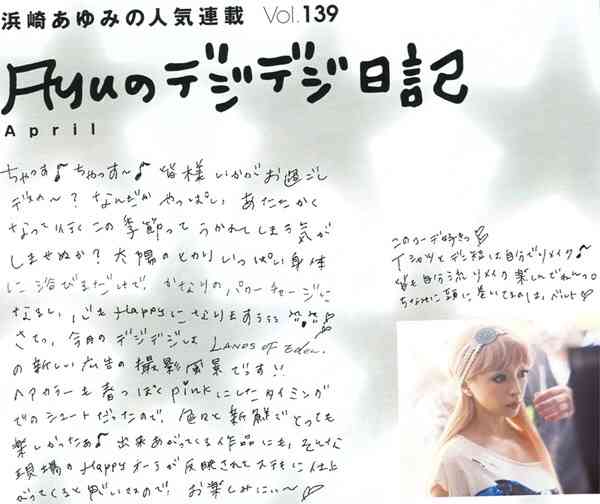 浜崎あゆみの人気連載 Vol.139
Ayuのデジデジ日記
April
ちゃっす♪ ちゃっす〜♪ 皆様いかがお過ごし
デすか〜? なんだかやっぱし、あたたかく
なって行くこの季節ってうかれてしまう気が
しませぬか? 太陽のヒカリいっぱい身体
に浴びるだけで、かなりのパワーチャージに
なるし、心も Happy になりますうぅぅ
さてっ、今月のデジデジは LANDS of Eden.
の新しい広告の撮影風景ですっ!!
ヘアカラーも春っぽく pink にしたタイミング
でのシュートだったので、色々と新鮮でとっても
楽しかったぁ♪ 出来あがってくる作品にも、そんな
現場の Happy オーラが反映されてステキに仕上
がってくると思いますので、お楽しみにぃ〜♡
このコーデ好きっ♡
Tシャツとデニ短は自分でリメイク♪
皆も自分流リメイク楽しんでねんっ。
ちなみに頭に巻いてるのは、ベルト♡